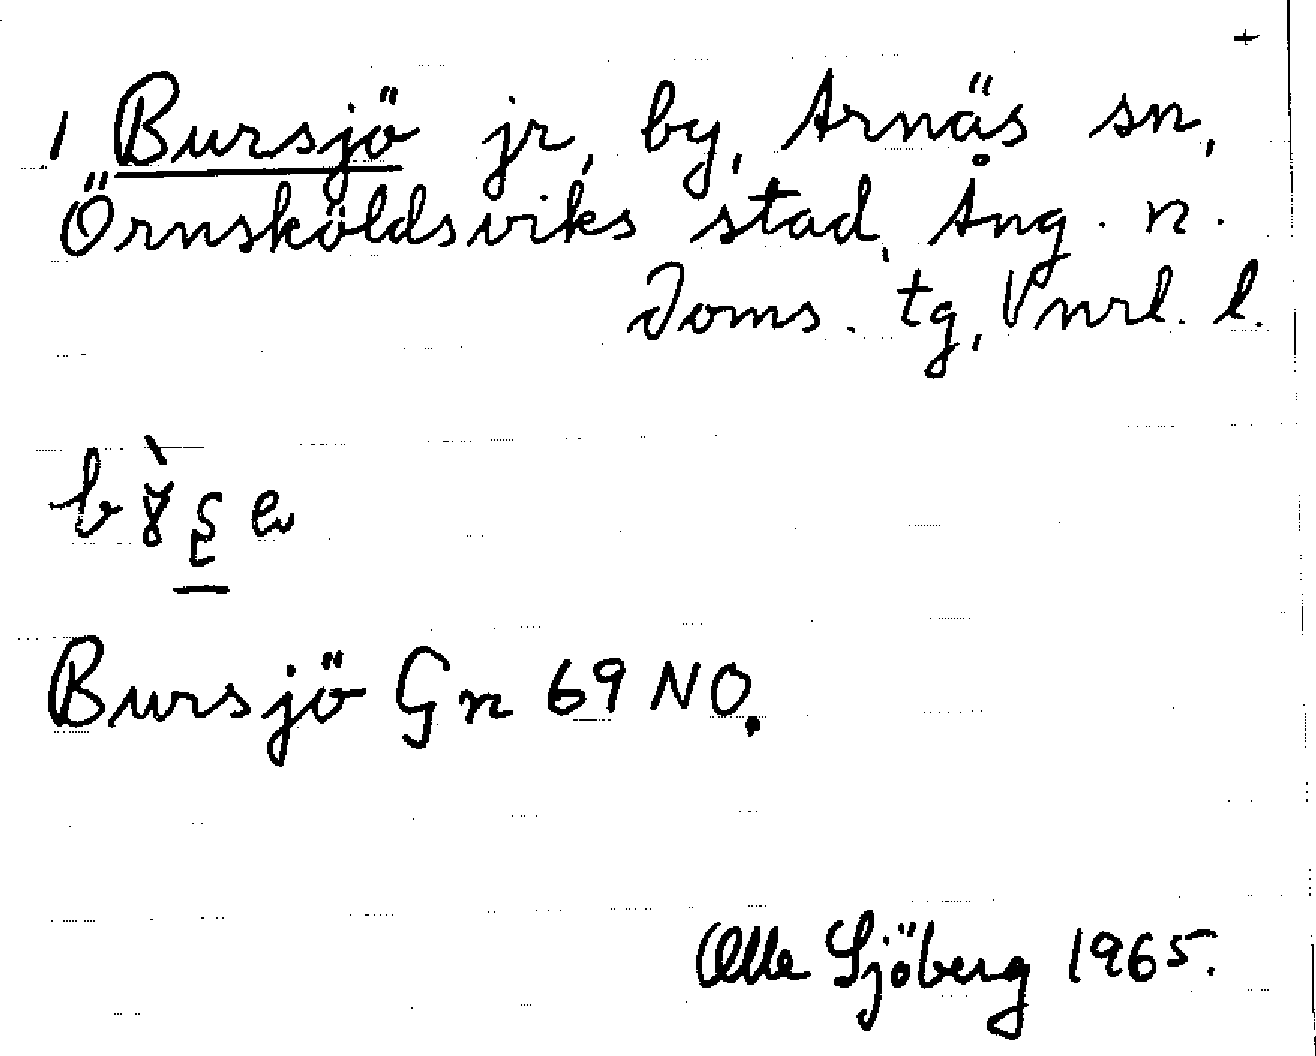 +
1 Bursjö jr, by, Arnäs sn,
Örnsköldsviks stad, Ång. n.
Doms. tg, Vnrl. l.
Bursjö Gn 69 NO.
Olle Sjöberg 1965.